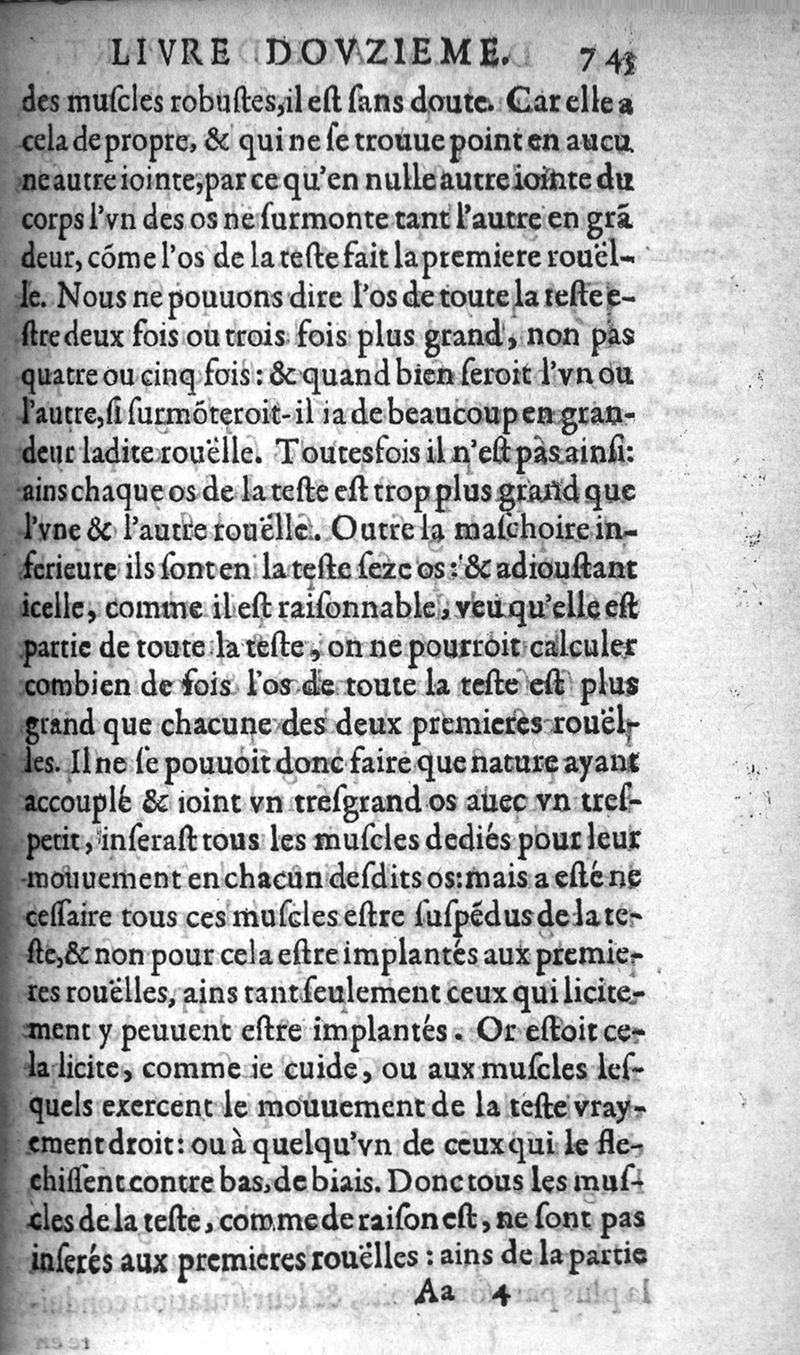 LIVRE DOVZIEME. 743
des muſcles robuſtes, il eſt ſans doute. Car elle a
cela de propre, & qui ne ſe trouue point en aucu
ne autre iointe, par ce qu'en nulle autre iointe du
corps l'vn des os ne ſurmonte tant l'autre en grã
deur, cóme l'os de la teſte fait la premiere rouël-
le. Nous ne pouuons dire l'os de toute la teſte e-
ſtre deux fois ou trois fois plus grand, non pas
quatre ou cinq fois: & quand bien ſeroit l'vn ou
l'autre, ſi ſurmōteroit-il ia de beaucoup en gran-
deur ladite rouëlle. Toutesfois il n'eſt pas ainſi:
ains chaque os de la teſte eſt trop plus grand que
l'vne & l'autre rouëlle. Outre la maſchoire in-
ferieure ils ſont en la teſte ſeze os: & adiouſtant
icelle, comme il eſt raiſonnable, veu qu'elle eſt
partie de toute la teſte, on ne pourroit calculer
combien de fois l'os de toute la teſte eſt plus
grand que chacune des deux premieres rouël-
les. Il ne ſe pouuoit donc faire que nature ayant
accouplé & ioint vn treſgrand os auec vn treſ-
petit, inſeraſt tous les muſcles dediés pour leur
mouuement en chacun deſdits os: mais a eſté ne
ceſſaire tous ces muſcles eſtre ſuſpédus de la te-
ſte, & non pour cela eſtre implantés aux premie-
res rouëlles, ains tant ſeulement ceux qui licite-
ment y peuuent eſtre implantés. Or eſtoit ce-
la licite, comme ie cuide, ou aux muſcles leſ-
quels exercent le mouuement de la teſte vray-
ement droit: ou à quelqu'vn de ceux qui le fle-
chiſſent contre bas, de biais. Donc tous les muſ-
cles de la teſte, comme de raiſon eſt, ne ſont pas
inſerés aux premieres rouëlles: ains de la partie
Aa 4